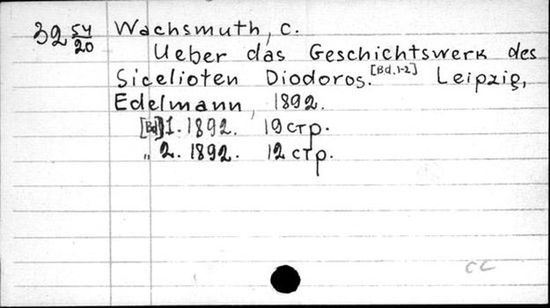 32 54/20 Wachsmuth, C.
Ueber das Geschichtswerk des
Sicelioten Diodoros. [Bd. 1-2] Leipzig,
Edelmann, 1892.
[Bd] 1. 1892. 19 стр.
„ 2. 1892. 12 стр.
CC